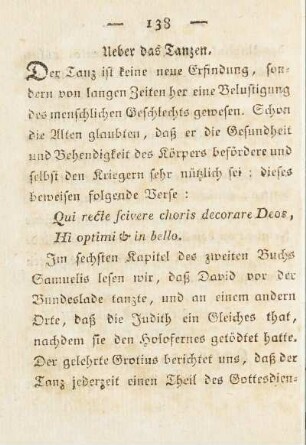 — 138 —
Ueber das Tanzen.
Der Tanz ist keine neue Erfindung, son-
dern von langen Zeiten her eine Belustigung
des menschlichen Geschlechts gewesen. Schon
die Alten glaubten, daß er die Gesundheit
und Behendigkeit des Körpers befördere und
selbst den Kriegern sehr nützlich sei; dieses
beweisen folgende Verse:
Qui recte scivere choris decorare Deos,
Hi optimi & in bello.
Im sechsten Kapitel des zweiten Buchs
Samuelis lesen wir, daß David vor der
Bundeslade tanzte, und an einem andern
Orte, daß die Judith ein Gleiches that,
nachdem sie den Holofernes getödtet hatte.
Der gelehrte Grotius berichtet uns, daß der
Tanz jederzeit einen Theil des Gottesdien-